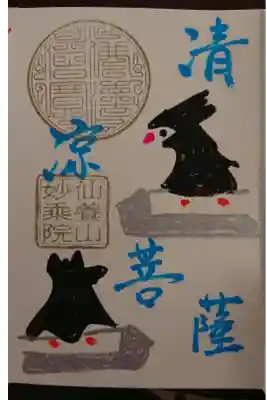 清
涼
菩
薩
仙養山
妙乗院